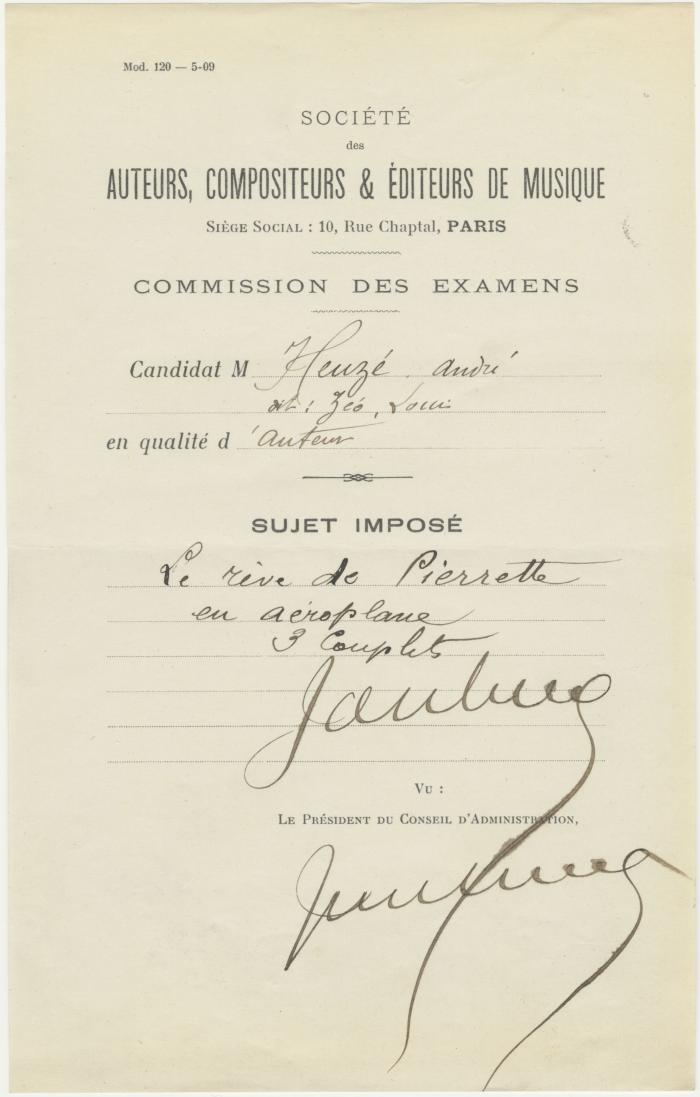 Mod. 120 — 5-09
SOCIÉTÉ
des
AUTEURS, COMPOSITEURS & ÉDITEURS DE MUSIQUE
SIÈGE SOCIAL : 10, Rue Chaptal, PARIS
COMMISSION DES EXAMENS
Candidat M Heuzé André
dit : Zéo, Louis
en qualité d'Auteur
SUJET IMPOSÉ
Le rêve de Pierrette
en aéroplane
3 Couplets
VU :
LE PRÉSIDENT DU CONSEIL D'ADMINISTRATION,